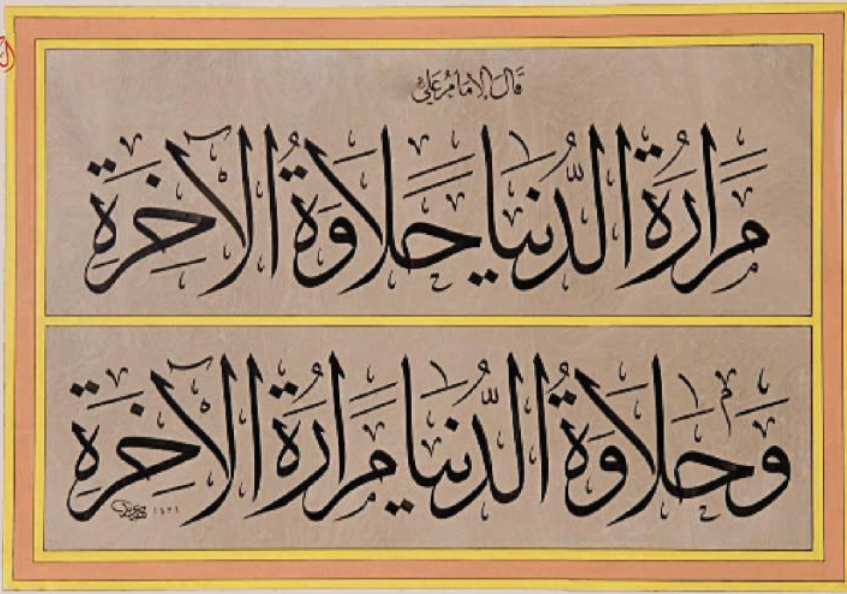 قَالَ الإِمَامُ عَلِيٌّ
مَرَارَةُ الدُّنْيَا حَلَاوَةُ الْآخِرَةِ
وَحَلَاوَةُ الدُّنْيَا مَرَارَةُ الْآخِرَةِ
١٤٣١